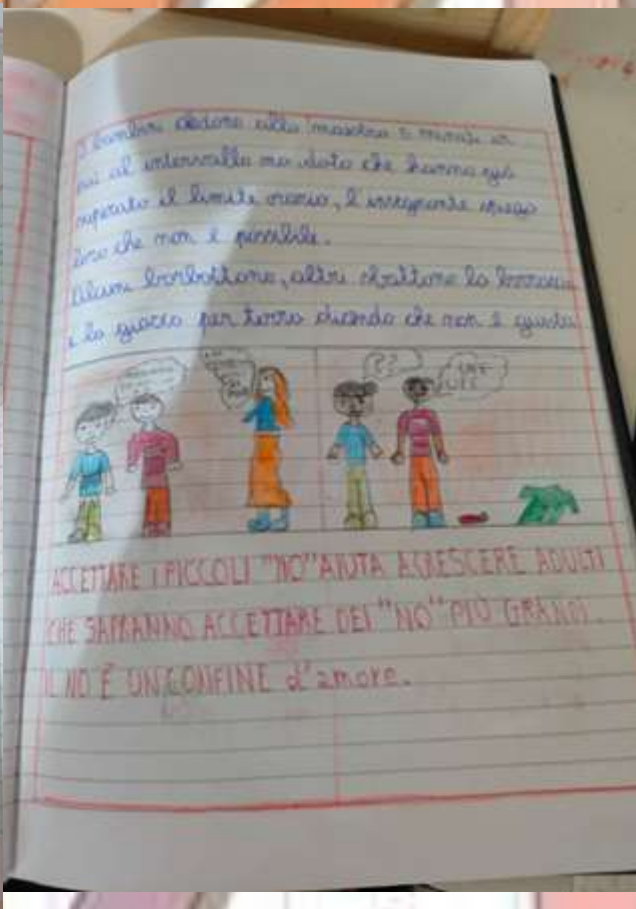 I bambini chiedono alla maestra 5 minuti in
più al intervallo ma dato che hanno già
superato il limite orario, l'insegnante spiega
loro che non è possibile.
Alcuni borbottano, altri sbattono la borraccia
e la giacca per terra dicendo che non è giusto
ACCETTARE I PICCOLI "NO" AIUTA A CRESCERE ADULTI
CHE SAPRANNO ACCETTARE DEI "NO" PIÙ GRANDI.
IL NO È UN CONFINE d'amore.